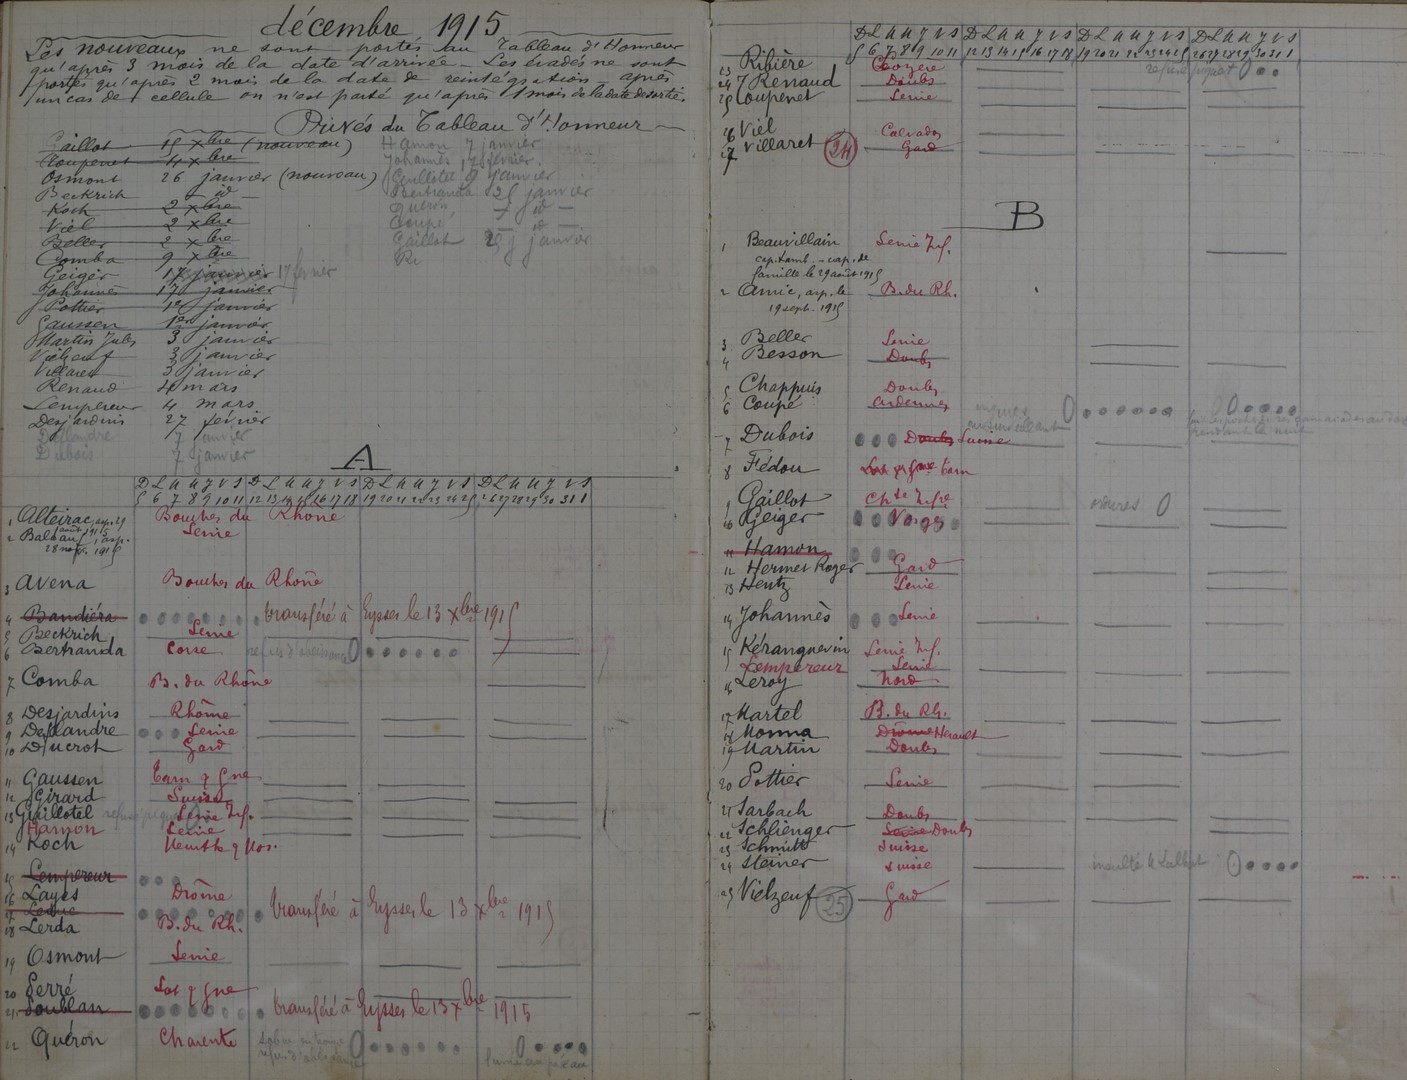 décembre 1915
Les nouveaux ne sont portés au Tableau d'Honneur
qu'après 3 mois de la date d'arrivée - Les évadés ne sont
portés qu'après 2 mois de la date de reintégration - après
un cas de cellule on n'est porté qu'après 1 mois de la date de sortie.
Privés du Tableau d'Honneur
Caillot 15 xbre (nouveau)
Coupenet 4 xbre
Osmont 26 janvier (nouveau)
Beckrich - id -
Koch 2 xbre
Viel 2 xbre
Beller 2 xbre
Comba 9 xbre
Geiger 17 janvier 17 février
Johannès 17 janvier
Pottier 1er janvier
Gaussen 1er janvier
Martin Jules 3 janvier
Vielzeuf 3 janvier
Villaret 3 janvier
Renaud 4 mars
Lempereur 4 mars
Desjardins 27 février
Deflandre 7 janvier
Dubois 7 janvier
Hamon 7 janvier
Johannès 17 février
Guillotel 9 janvier
Bertranda 25 janvier
Quéron - id -
Coupé - id -
Caillot 29 janvier
Ri
A
D L M M J V S D L M M J V S D L M M J V S D L M M J V S
5 6 7 8 9 10 11 12 13 14 15 16 17 18 19 20 21 22 23 24 25 26 27 28 29 30 31 1
1 Alteirac, asp. 29 août 1915 Bouches du Rhône
2 Balbau, asp. 28 nov. 1915 Seine
3 Avena Bouches du Rhône
4 Bandiéra transféré à Eysses le 13 Xbre 1915
5 Beckrich Seine
6 Bertranda Corse refus d'obéissance 0
7 Comba B. du Rhône
8 Desjardins Rhône
9 Deflandre Seine
10 Ducroh Gard
11 Gaussen Tarn & Gne
12 Girard Suisse
13 Guillotel Seine Inf.
Hamon Seine
14 Koch Meurthe & Mos.
15 Lempereur
16 Layes Drôme
17 Leduc transféré à Eysses le 13 Xbre 1915
18 Lerda B. du Rh.
19 Osmont Seine
20 Perré Lot & Gne
21 Soublan transféré à Eysses le 13 Xbre 1915
22 Quéron Charente 0 0
D L M M J V S D L M M J V S D L M M J V S D L M M J V S
5 6 7 8 9 10 11 12 13 14 15 16 17 18 19 20 21 22 23 24 25 26 27 28 29 30 31 1
23 Ribière Lozère 0
24 Renaud Doubs
25 Coupenet Seine
26 Viel Calvados
27 Villaret 24 Gard
B
1 Beauvillain Seine Inf.
cap. tamb. - cap. de
famille le 29 août 1915
2 Amic, asp. le B. du Rh.
19 sept. 1915
3 Beller Seine
4 Besson Doubs
5 Chappuis Doubs
6 Coupé Ardennes 0 00
7 Dubois Doubs Suisse
8 Fédou Lot & Gne Tarn
9 Gaillot Chte Infre 0
10 Geiger Vosges
11 Hamon
12 Hermet Roger Gard
13 Hentz Seine
14 Johannès Seine
15 Kéranguevin Seine Inf.
Lempereur Seine
16 Leroy Nord
17 Martel B. du Rh.
18 Monna Drôme Hérault
19 Martin Doubs
20 Pottier Seine
21 Sarbach Doubs
22 Schlienger Seine Doubs
23 Schmitt Suisse
24 Steiner Suisse 0
25 Vielzeuf 25 Gard